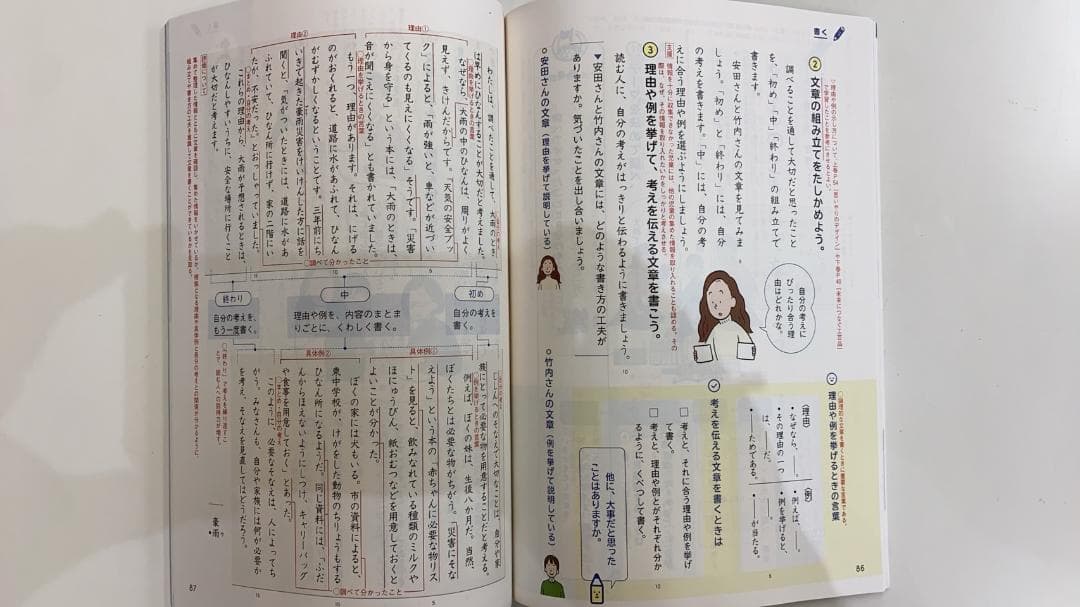 書く
② 文章の組み立てをたしかめよう。
調べることを通して大切だと思ったこと
を、「初め」「中」「終わり」の組み立てで
書きます。
安田さんと竹内さんの文章を見てみま
しょう。「初め」と「終わり」には、自分
の考えを書きます。「中」には、自分の考
えに合う理由や例を選ぶようにしましょう。
③ 理由や例を挙げて、考えを伝える文章を書こう。
読む人に、自分の考えがはっきりと伝わるように書きましょう。
▼安田さんと竹内さんの文章には、どのような書き方の工夫が
ありますか。気づいたことを出し合いましょう。
自分の考えに
ぴったり合う理
由はどれかな。
理由や例を挙げるときの言葉
〈理由〉
・なぜなら、
・その理由の一つ
は、
・ためである。
〈例〉
・例えば、
・例を挙げると、
・が当たる。
考えを伝える文章を書くときは
□ 考えと、それに合う理由や例を挙げ
て書く。
□ 考えと、理由や例とがそれぞれ分か
るように、くべつして書く。
他に、大事だと思った
ことはありますか。
86
○安田さんの文章（理由を挙げて説明している）
わたしは、調べたことを通して、大雨のとき
は早めにひなんすることが大切だと考えました。
理由を挙げるときの言葉
なぜなら、「大雨の中のひなんは、周りがよく
見えず、きけんだからです。「天気の安全ブッ
ク」によると、「雨が強いと、車などが近づい
てくるのも見えにくくなる」そうです。「災害
から身を守る」という本には、「大雨のときは、
音が聞こえにくくなる」とも書かれていました。
理由を挙げるときの言葉
もう一つ、理由があります。それは、にげる
のがおくれると、道路に水があふれて、ひなん
がむずかしくなるということです。三年前にち
いきで起きた豪雨災害をけいけんした方に話を
聞くと、「気がついたときには、道路に水があ
ふれていて、ひなん所に行けず、家の二階にい
たが、不安だった」とおっしゃっていました。
これらの理由から、大雨が予想されるときは、
ひなんしやすいうちに、安全な場所に行くこと
が大切だと考えます。
理由①
理由②
調べて分かったこと
初め
自分の考えを
書く。
中
理由や例を、内容のまとま
りごとに、くわしく書く。
終わり
自分の考えを、
もう一度書く。
○竹内さんの文章（例を挙げて説明している）
族にとって必要な物を用意することだと考える。
例えば、ぼくの妹は、生後八か月だ。当然、
ぼくたちとは必要な物がちがう。「災害にそな
えよう」という本の「赤ちゃんに必要な物リス
ト」を見ると、飲みなれている種類のミルクや
ほにゅうびん、紙おむつなどを用意しておくと
よいことが分かった。
ぼくの家には犬もいる。市の資料によると、
東中学校が、けがをした動物のちりょうもする
ひなん所になるようだ。同じ資料には、「ふだ
んからほえないようにしつけ、キャリーバッグ
や食事を用意しておく」とあった。
このように、必要なそなえは、人によってち
がう。みなさんも、自分や家族には何が必要か
を考え、そなえを見直してはどうだろう。
具体例①
具体例②
調べて分かったこと
・豪雨
87